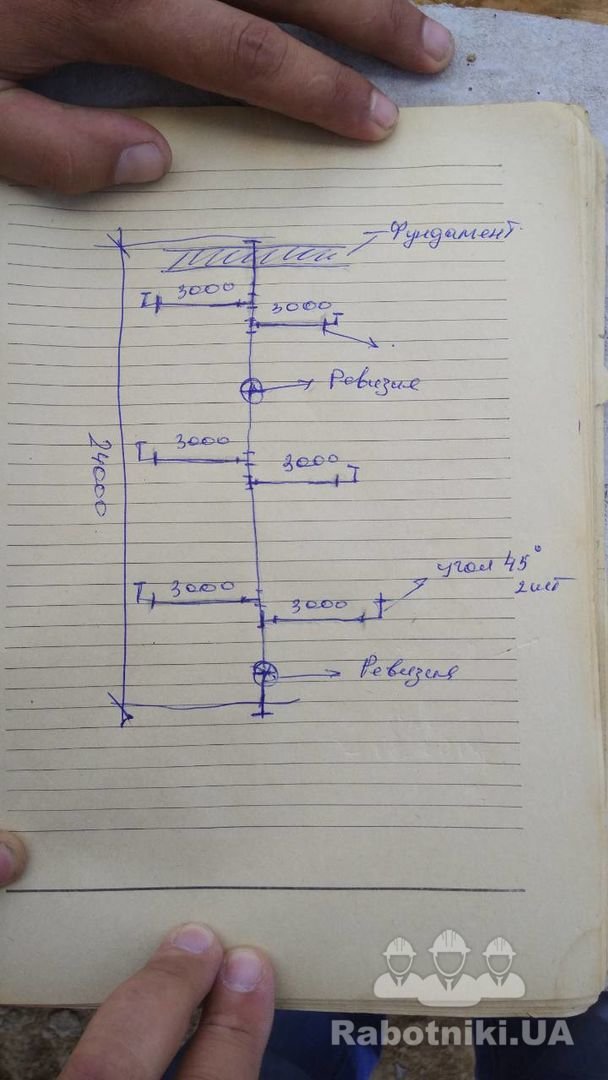 Фундамент.
3000
3000
Ревизия
3000
3000
24000
угол 45°
2шт
3000
3000
Ревизия
Rabotniki.UA